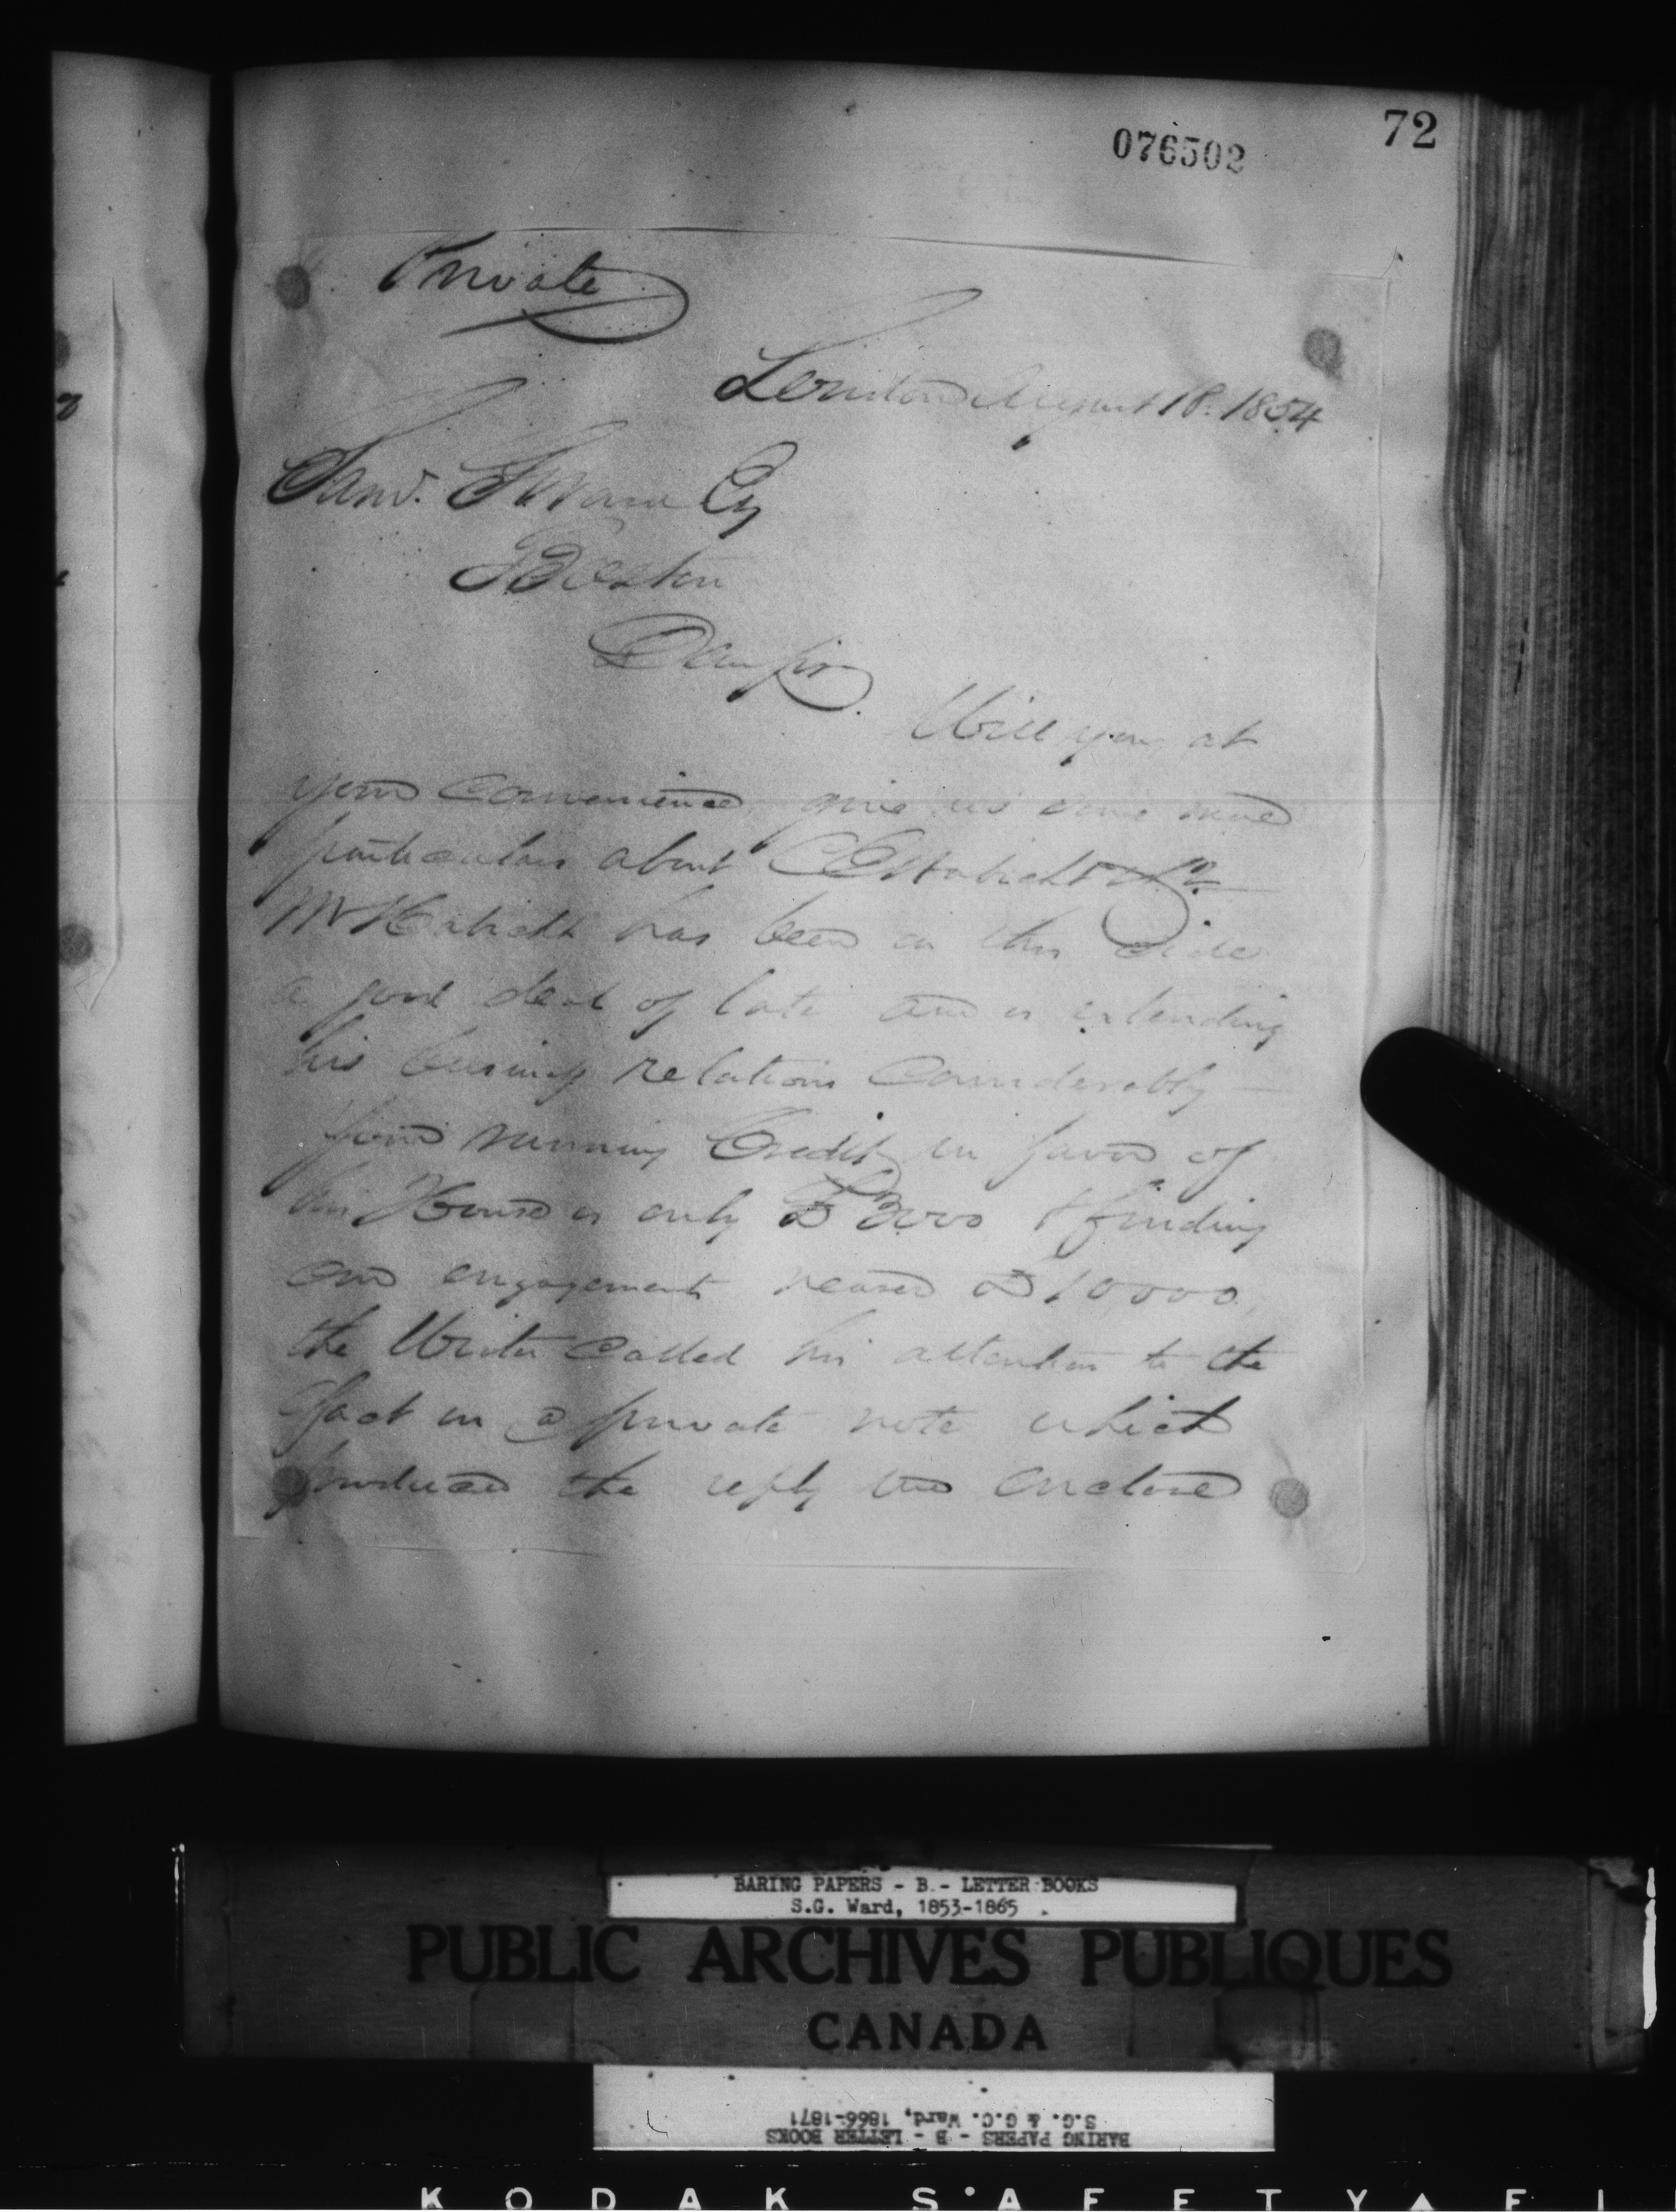 72
076502
Private
London August 18. 1854
Saml. G. Ward Esq
Boston
Dear Sir
Will you at
your convenience, give us some more
particulars about C E Habicht & Co
Mr Habicht has been on this side
a good deal of late and is extending
his business relations considerably
Your running Credit in favor of
his House is only £3000 & finding
our engagements neared £10,000,
the Writer called his attention to the
fact in a private note which
produced the reply we enclose
BARING PAPERS - B. - LETTER BOOKS
S.G. Ward, 1853-1865
PUBLIC ARCHIVES PUBLIQUES
CANADA
BARING PAPERS - B - LETTER BOOKS
S.G. & G.C. Ward, 1866-1871
KODAK SAFETY FI